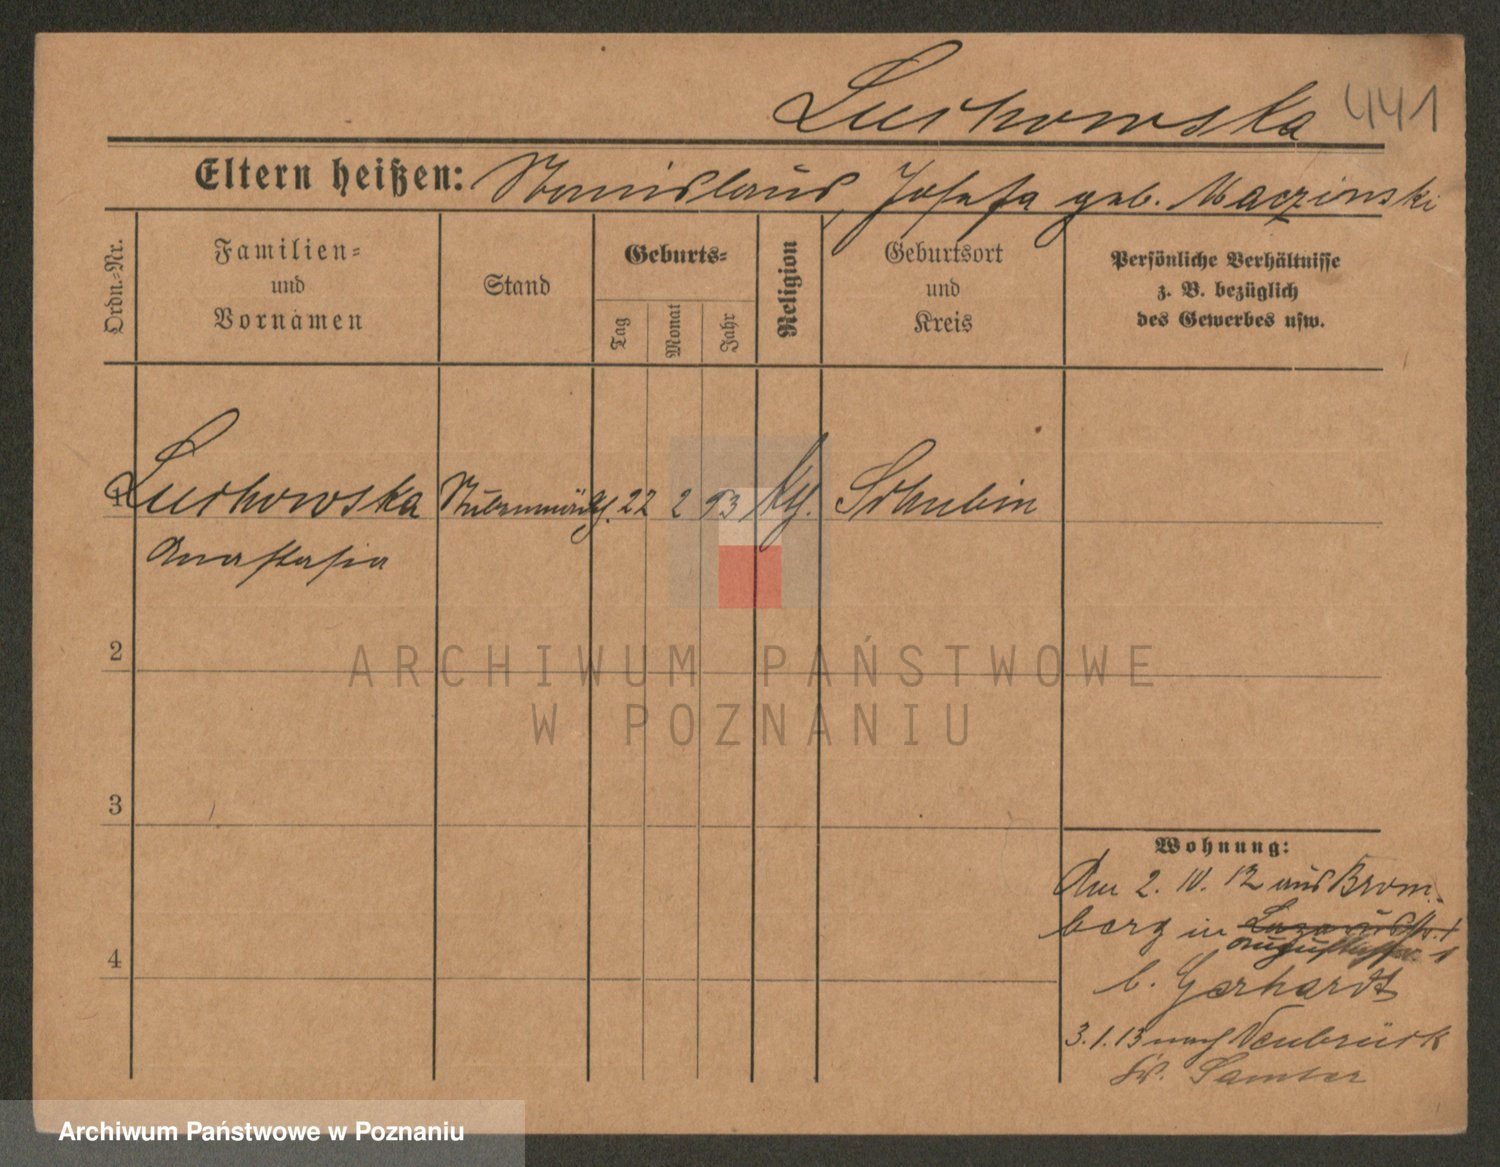 Luchowska 441
Eltern heißen: Stanislaus, Josefa geb. Maczinski
Ordn.-Nr.
Familien-
und
Vornamen
Stand
Geburts-
Tag
Monat
Jahr
Religion
Geburtsort
und
Kreis
Persönliche Verhältnisse
z. B. bezüglich
des Gewerbes usw.
1 Luchowska Stubenmädch. 22 2 93 kth. Schubin
Anastasia
2
3
4
Wohnung:
Am 2. 10. 12 aus Brom-
berg in Lazarusstr. 1
Augustastr. 1
b. Gerhardt
3.1.13 nach Neubrück
Kr. Samter
ARCHIWUM PAŃSTWOWE
W POZNANIU
Archiwum Państwowe w Poznaniu